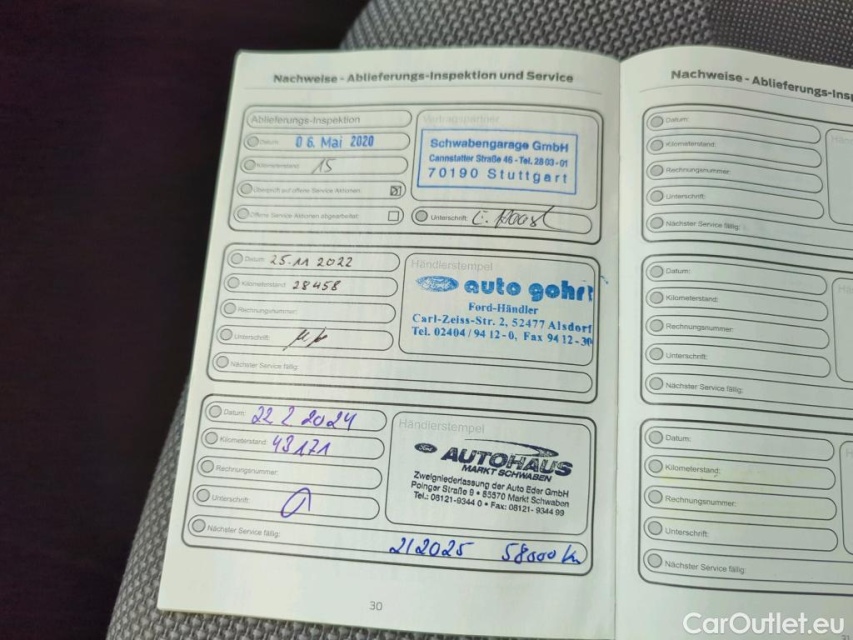 Nachweise - Ablieferungs-Inspektion und Service
Ablieferungs-Inspektion
Datum: 06. Mai 2020
Kilometerstand: 15
Überprüft auf offene Service Aktionen
Offene Service Aktionen abgearbeitet:
Vertragspartner
Schwabengarage GmbH
Cannstatter Straße 46 - Tel. 28 03-01
70190 Stuttgart
Unterschrift:
Datum: 25.11 2022
Kilometerstand: 28458
Rechnungsnummer:
Unterschrift:
Nächster Service fällig:
Händlerstempel
Ford auto gohr
Ford-Händler
Carl-Zeiss-Str. 2, 52477 Alsdorf
Tel. 02404/94 12-0, Fax 94 12-30
Datum: 22 2 2024
Kilometerstand: 43171
Rechnungsnummer:
Unterschrift:
Nächster Service fällig:
2/2025 58000 km
Händlerstempel
Ford AUTOHAUS
MARKT SCHWABEN
Zweigniederlassung der Auto Eder GmbH
Poinger Straße 9 • 85570 Markt Schwaben
Tel.: 08121-9344 0 • Fax: 08121- 9344 99
30
Nachweise - Ablieferungs-Insp
Datum:
Kilometerstand:
Rechnungsnummer:
Unterschrift:
Nächster Service fällig:
Datum:
Kilometerstand:
Rechnungsnummer:
Unterschrift:
Nächster Service fällig:
Datum:
Kilometerstand:
Rechnungsnummer:
Unterschrift:
Nächster Service fällig:
CarOutlet.eu